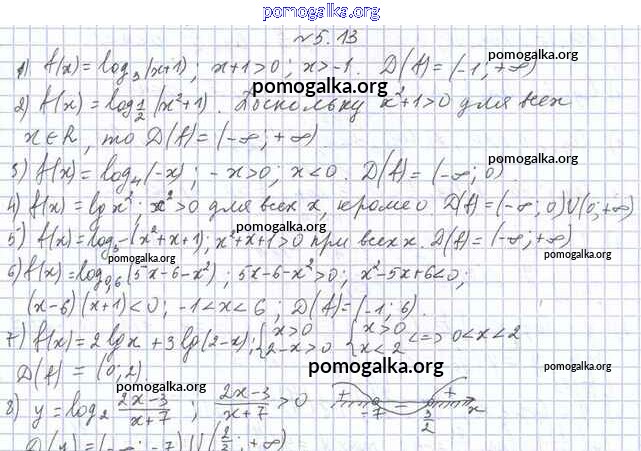 pomogalka.org
№5.13
1) f(x) = log₃(x+1); x+1>0; x>-1. D(f) = (-1; +∞)
pomogalka.org
2) f(x) = log_{1/2}(x²+1). Поскольку x²+1>0 для всех
pomogalka.org
x∈R, то D(f) = (-∞; +∞).
pomogalka.org
3) f(x) = log₄(-x); -x>0; x<0. D(f) = (-∞; 0)
4) f(x) = lg x²; x²>0 для всех x, кроме 0. D(f) = (-∞; 0)U(0; +∞)
pomogalka.org
5) f(x) = log₅(x²+x+1); x²+x+1>0 при всех x. D(f) = (-∞; +∞)
pomogalka.org
6) f(x) = log_{0,6}(5x-6-x²); 5x-6-x²>0; x²-5x+6<0;
(x-6)(x+1)<0; -1<x<6; D(f) = (-1; 6).
7) f(x) = 2lg x + 3lg(2-x); {x>0 {x>0 <=> 0<x<2
{2-x>0 {x<2
pomogalka.org
D(f) = (0; 2).
pomogalka.org
8) y = log₂ (2x-3)/(x+7); (2x-3)/(x+7) > 0 + -7 - 3/2 + x
D(y) = (-∞; -7)U(3/2; +∞)